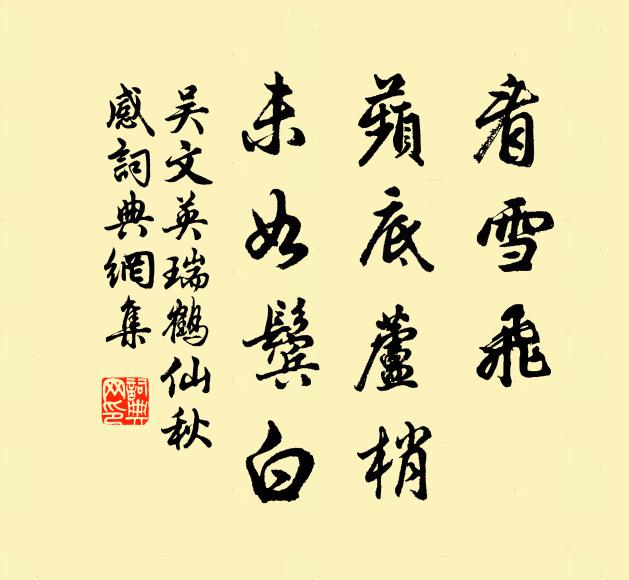 看雪飛
蘋底蘆梢
未如鬢白
吳文英瑞鶴仙秋
感詞典網集
詞典
网印